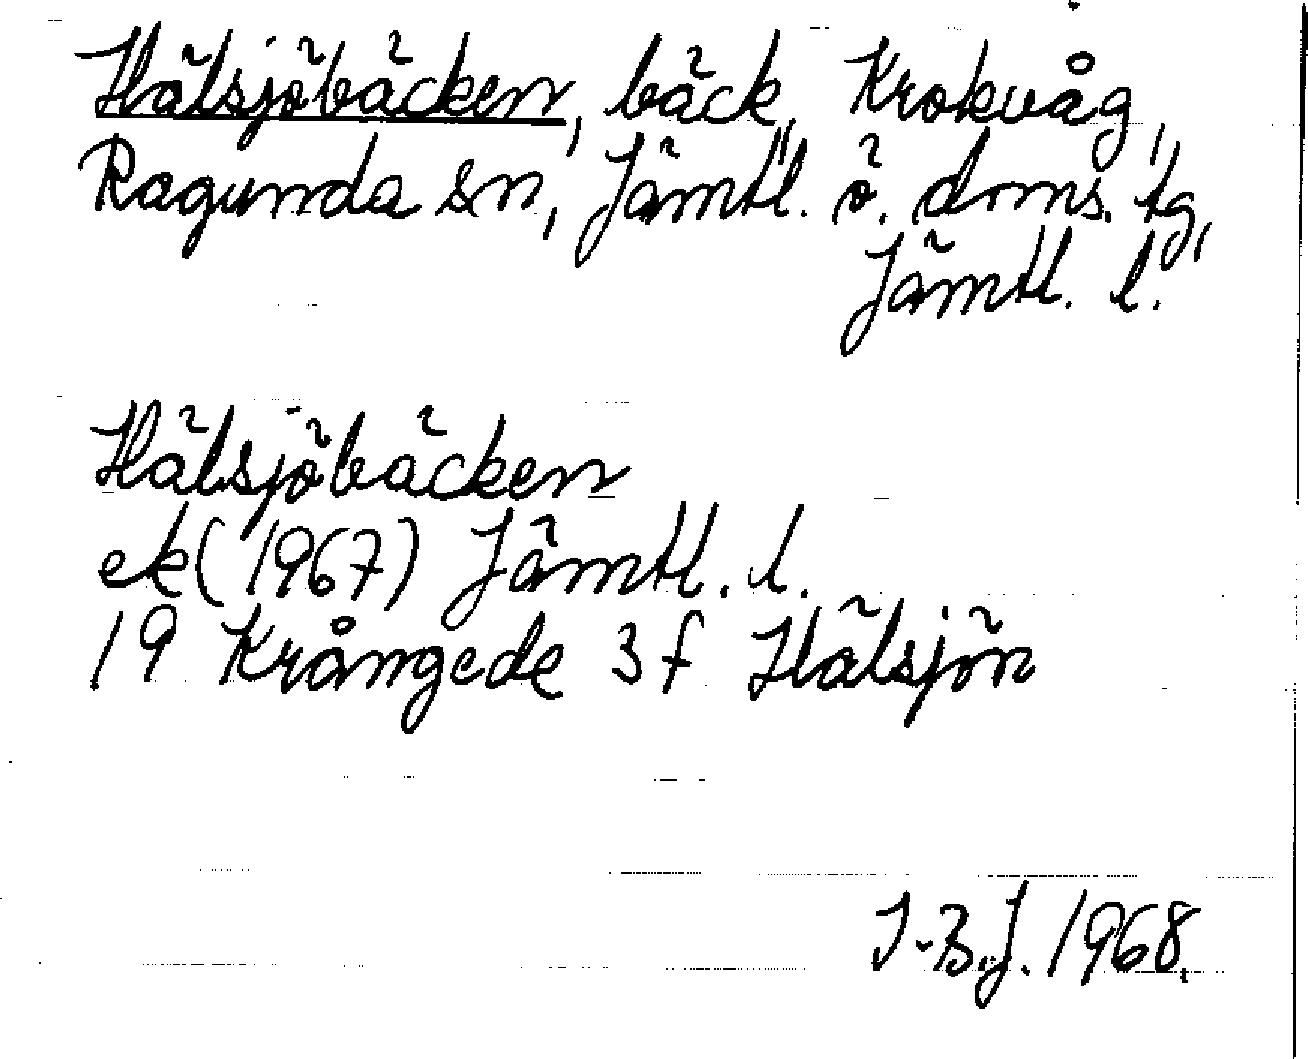 Hälsjöbäcken, bäck, Krokvåg,
Ragunda sn, Jämtl. ö. doms. tg,
Jämtl. l.
Hälsjöbäcken
ek (1967) Jämtl. l.
19 Krångede 3 f Hälsjön
I-B.J. 1968.